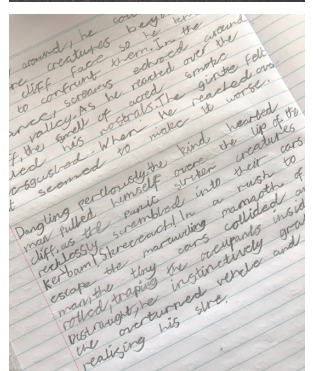 around, he cou
re creatures began
cliff face so he
to confront them. In
screams echoed around
valley. As he reached over the
f, the smell of acrid smoke
led his nostrils. The girite felt
sgushed. When he reached ou
t seemed to make it worse.
Dangling perilously, the kind hearted
man pulled himself over the lip of the
cliff, as the panic striten creatures
rechlessly scrambled into their cars.
kerbam! Skreeeach! In a rush to
escape the marauding mamoth of
man, the tiny cars collided and
rolled, traping the occupants insid
Distraught, he instinctively gra
the overturned vehcle and
realising his stre,